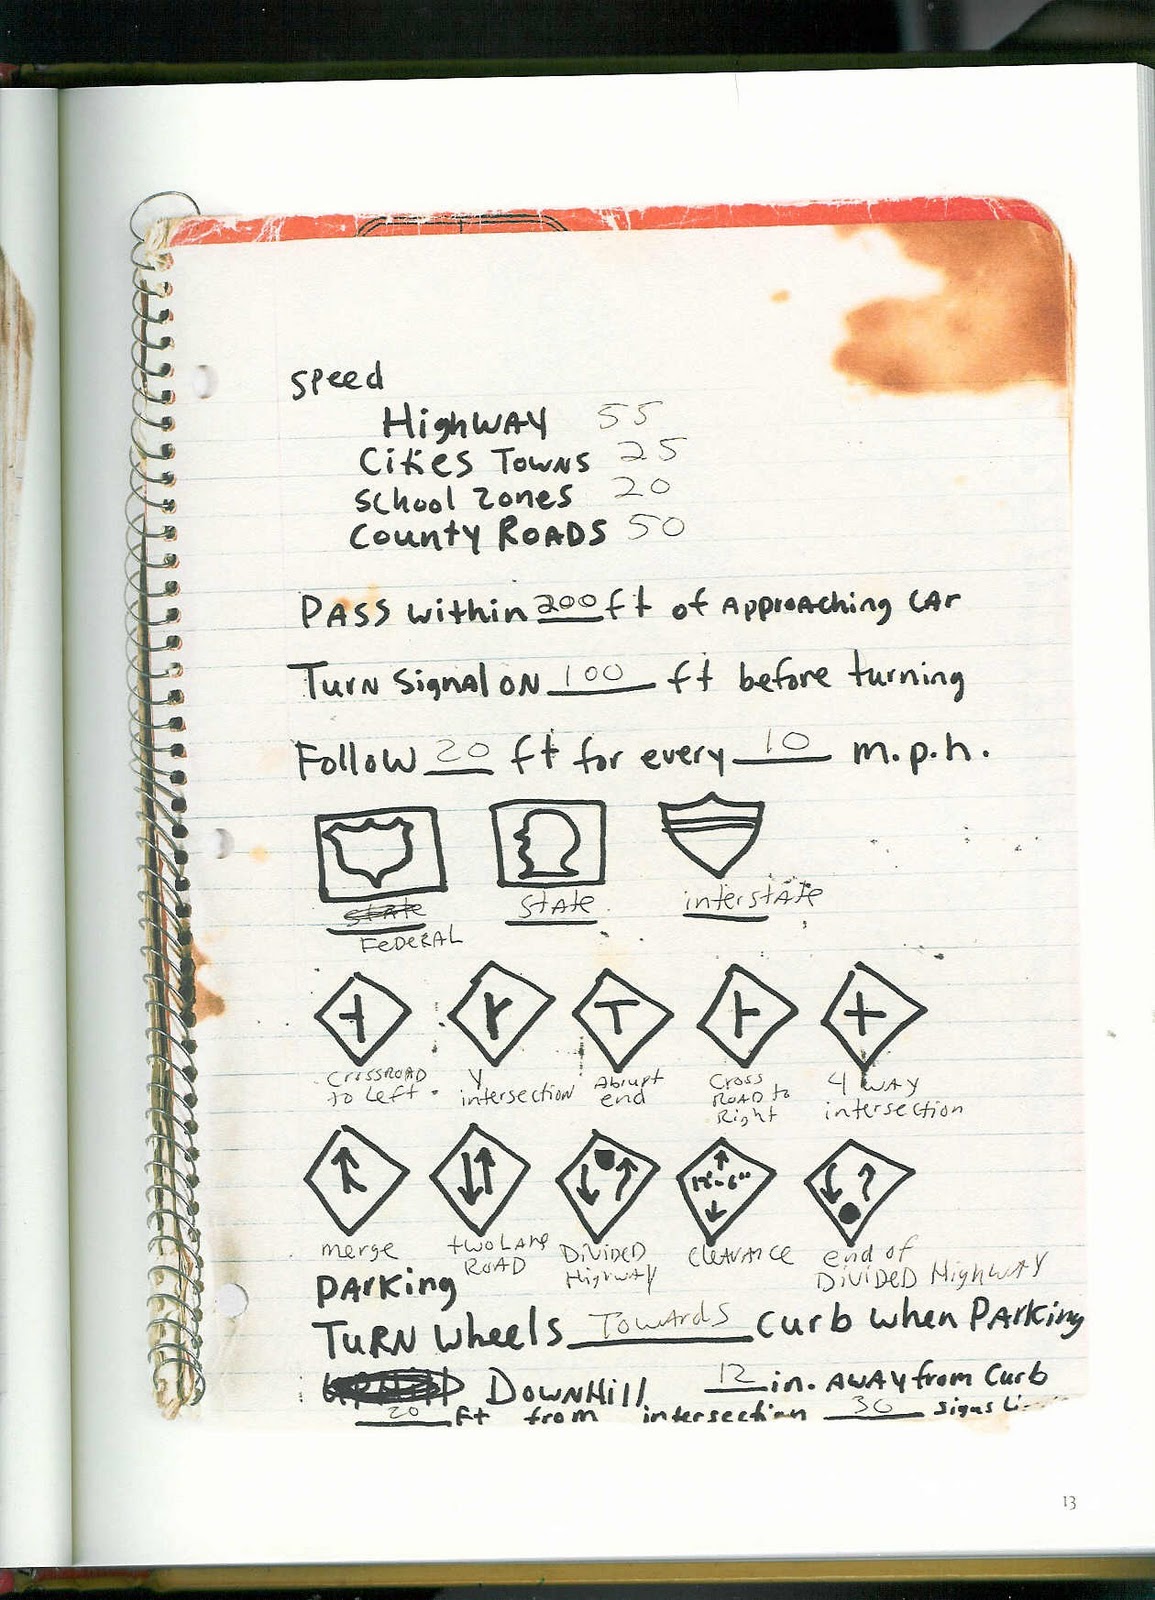 Speed
Highway 55
Cities Towns 25
School Zones 20
County Roads 50
Pass within 200 ft of approaching car
Turn Signal on 100 ft before turning
Follow 20 ft for every 10 m.p.h.
State State interstate
Federal
Crossroad to Left
Y intersection
Abrupt end
Cross Road to Right
4 way intersection
12'-6"
merge
two Lane Road
Divided Highway
Clearance
end of Divided Highway
Parking
Turn wheels Towards curb when Parking
Downhill 12 in. away from Curb
20 ft from intersection 30 signs
13